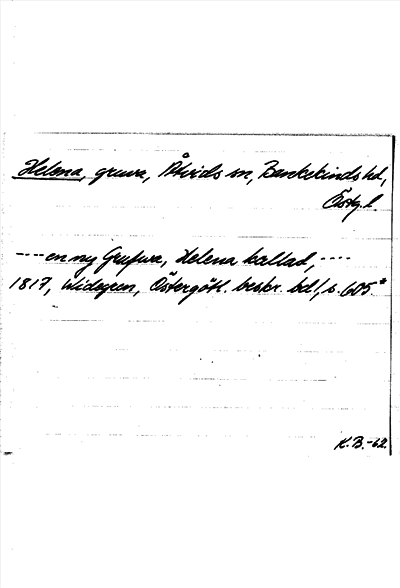 Helena, gruva, Åtvids sn, Bankekinds hd,
Östg. l.
---- en ny Grufwa, Helena kallad, ----
1817, Widegren, Östergötl. beskr. bd 1, s. 605.*
K.B.-62.